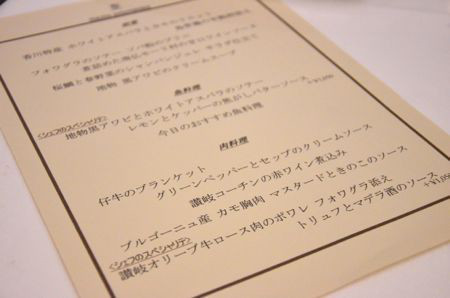 前菜
香川特産 ホワイトアスパラと
フォワグラのソテー ゴバ船のプリン
煮詰めた
桜鯛と春野菜のシャンパンジュレ サラダ仕立て
地物 黒アワビとクリームスープ
魚料理
<シェフのスペシャリテ>
地物黒アワビとホワイトアスパラのソテー
レモンとケッパーの焦がしバターソース
今日のおすすめ魚料理
肉料理
仔牛のブランケット
グリーンペッパーとセップのクリームソース
讃岐コーチンのホワイン煮込み
ブルゴーニュ産 カモ胸肉 マスタードときのこのソース
<シェフのスペシャリテ>
讃岐オリーブ牛ロース肉のポワレ フォワグラ添え
トリュフとマデラ酒のソース